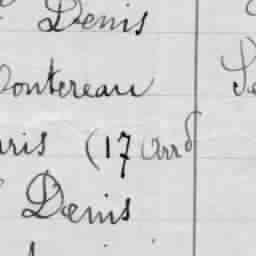 Denis
Montereau
Paris (17 Arrd
Denis